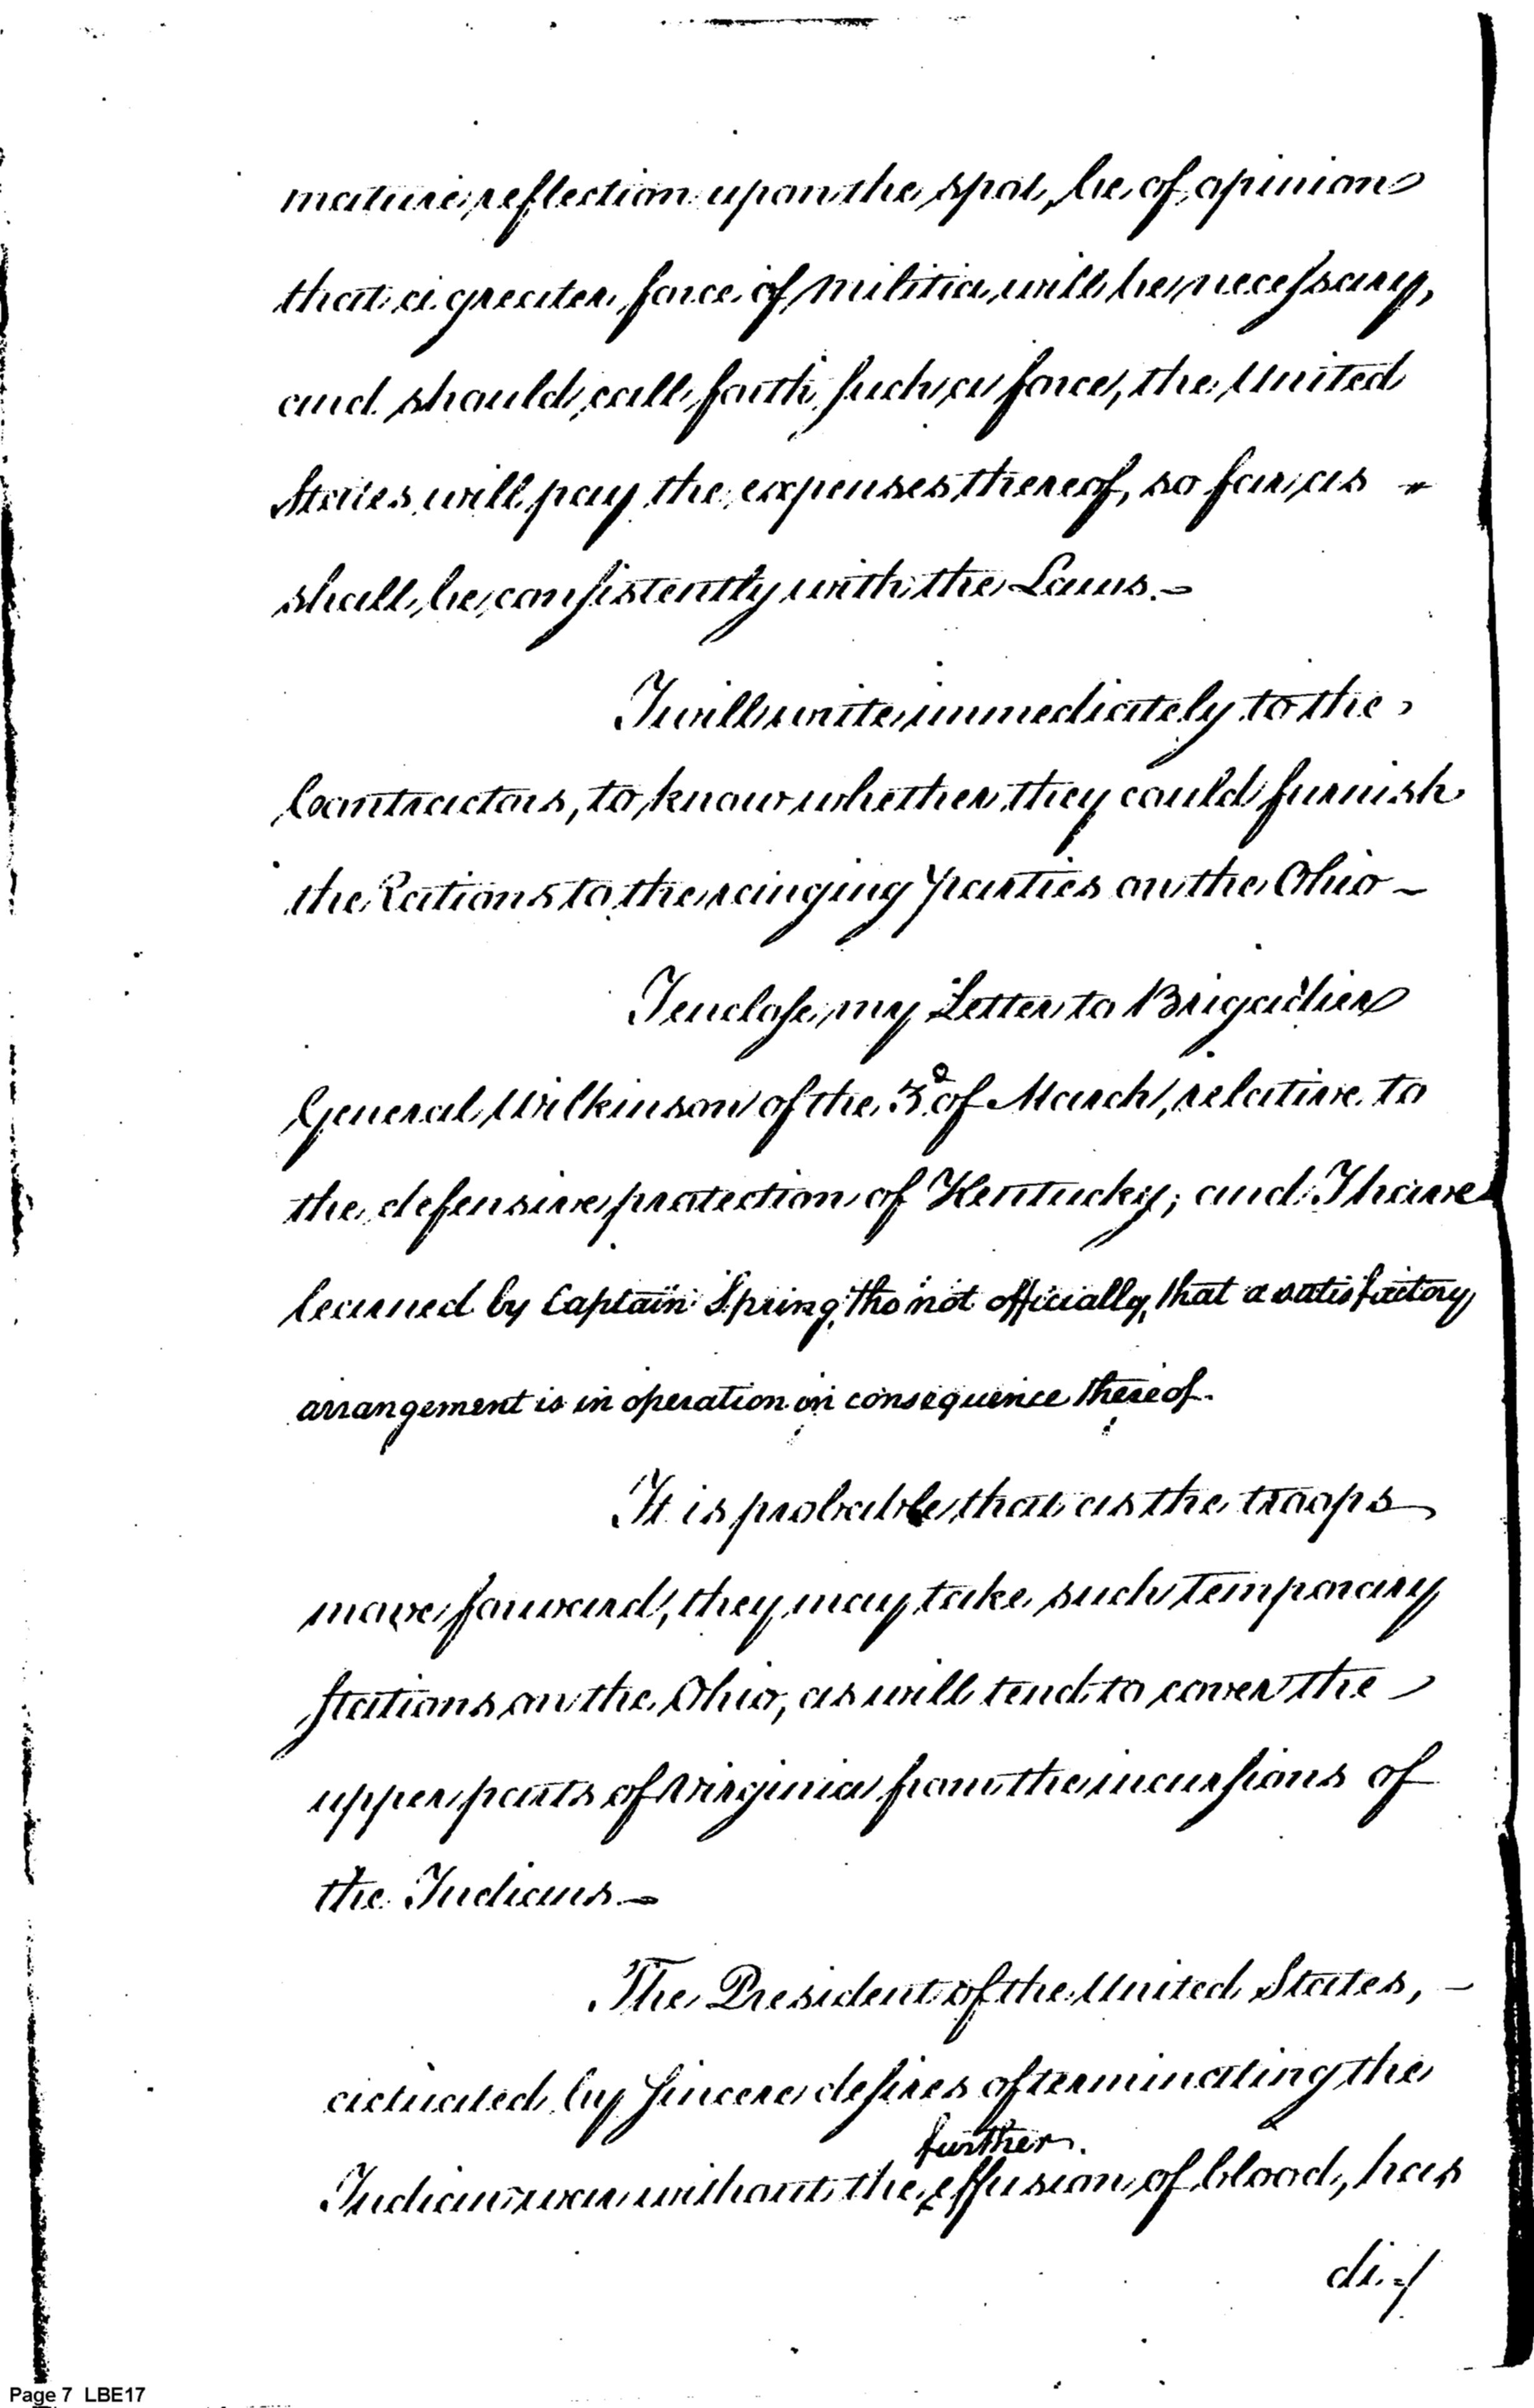 mature reflection upon the spot, be of opinion
that a greater force of Militia will be necessary,
and should call forth such a force, the United
States will pay the expenses thereof, so far as
shall be consistently with the Laws.-
I will write immediately to the
Contractors, to know whether they could furnish
the Rations to the ranging parties on the Ohio-
I enclose my Letter to Brigadier
General Wilkinson of the 3d of March, relative to
the defensive protection of Kentucky; and I have
learned by Captain Spring, tho' not officially, that a satisfactory
arrangement is in operation in consequence thereof.
It is probable that as the troops
move forward, they may take such temporary
stations on the Ohio, as will tend to cover the
upper parts of Virginia from the incursions of
the Indians.-
The President of the United States, -
actuated by sincere desires of terminating the
further
Indian war without the effusion of blood, has
di=/
Page 7 LBE17